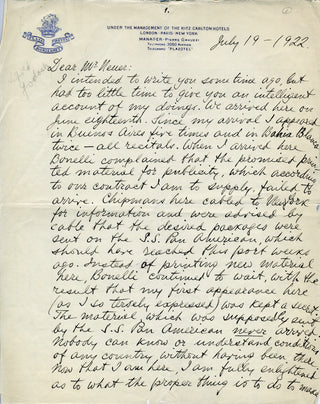 UNDER THE MANAGEMENT OF THE RITZ CARLTON HOTELS
LONDON-PARIS-NEW YORK
MANAGER-PIERRE
TELEPHONE 3080 AVENIDA
TELEGRAMS "PLAZOTEL"
July 19-1922
Dear Mr
I intended to write you some time ago, but
had too little time to give you an intelligent
account of my doings. We arrived here on
June eighteenth. Since my arrival I appeared
in Buenos Aires five times and in Bahia Blanca
twice - all recitals. When I arrived here
Bonelli complained that the promised prin-
ted material for publicity, which according
to our contract I am to supply, failed to
arrive. Chipmans here cabled to New York
for information and were advised by
cable that the desired packages were
sent on the S.S. Pan American, which
should have reached this port weeks
ago. Instead of printing new material
here Bonelli continued to wait with the
result that my first appearance here
(as I so tersely expressed) was kept a secret.
The material, which was supposedly sent
by the S.S. Pan American never arrived.
Nobody can know or understand conditions
of any country without having been there.
Now that I am here, I am fully enlightened
as to what the proper thing is to do to make